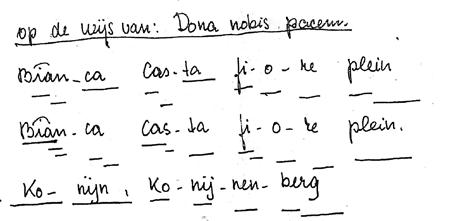 op de wijs van: Dona nobis pacem.
Bian-ca Cas-ta fi-o-re plein
Bian-ca Cas-ta fi-o-re plein.
Ko-nijn, Ko-nij-nen-berg